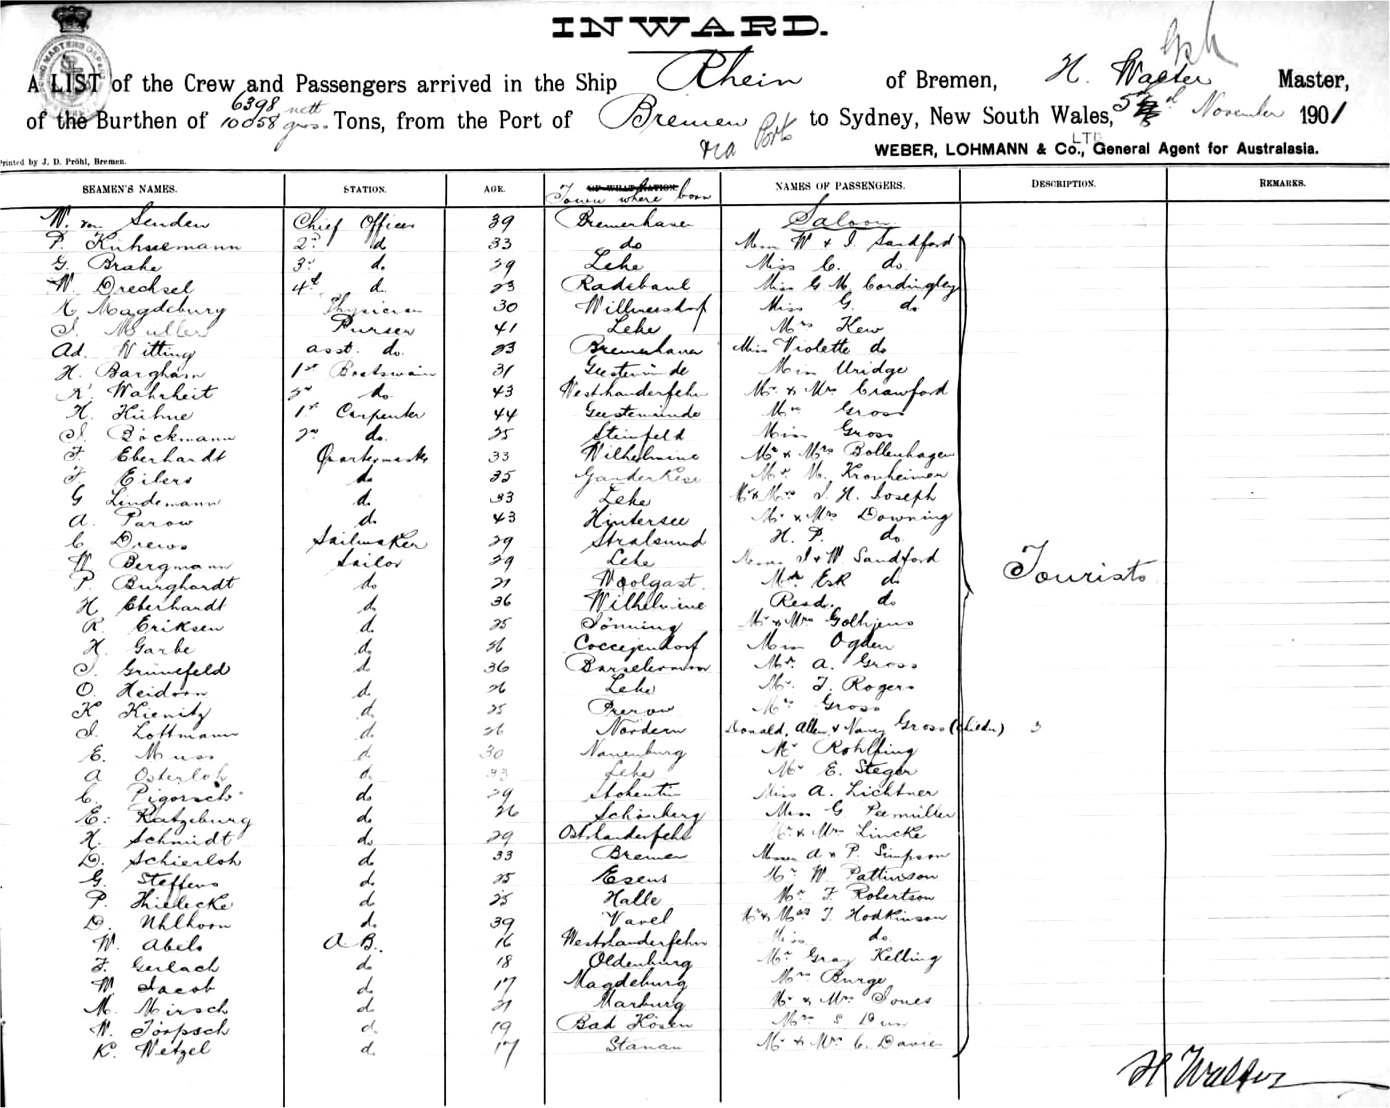 INWARD.
A LIST of the Crew and Passengers arrived in the Ship Rhein of Bremen, H. Walter Master,
of the Burthen of 6398 nett 10058 gross Tons, from the Port of Bremen via Ports to Sydney, New South Wales, 5th November 1901
Printed by J. D. Pröhl, Bremen.
WEBER, LOHMANN & Co., LTD General Agent for Australasia.
SEAMEN'S NAMES. STATION. AGE. Town where born NAMES OF PASSENGERS. DESCRIPTION. REMARKS.
W. von Senden Chief Officer 39 Bremerhaven Saloon
P. Kühnemann 2nd d 33 do Messrs W & J. Sandford
G. Brake 3rd d. 29 Lehe Miss C. do
W. Drechsel 4th d. 23 Radebaul Miss G M Cordingley
H Magdeburg Physician 30 Willmersdorf Miss G. do
J. Müller Purser 41 Lehe Mrs Kew
Ad. Witting asst. do. 23 Bremerhaven Miss Violette do
H. Bargham 1st Boatswain 31 Geestemünde Miss Uridge
R. Wahrheit 2nd do. 43 Westrhauderfehn Mr & Mrs Crawford
H. Hühne 1st Carpenter 44 Geestemünde Mrs Gross
J. Böckmann 2nd do. 25 Steinfeld Miss Gross
F. Eberhardt Quartermaster 33 Wilhelmine Mr & Mrs Bollenhagen
F Eilers do 35 Ganderkese Mr. M. Kronheimer
G Lindemann d. 33 Lehe Mr & Mrs J. H. Joseph
A. Parow d. 43 Hintersee Mr & Mrs Downing
C Drews Sailmaker 29 Stralsund H. P. do.
W Bergmann Sailor 29 Lehe Messrs J & W Sandford
P. Burghardt do 21 Woolgast Esk do
H Eberhardt d. 36 Wilhelmine Read. do
R. Eriksen d. 25 Tönning Mr & Mrs
H. Garbe d. 26 Coccejendorf Miss Ogden
J. Grünefeld d 36 Barsselermoor Mr. A. Gross
O. Heidorn d. 26 Lehe Mr. J. Rogers
K Kienitz d. 25 Prerow Mrs Gross
J. Lottmann d. 26 Nordern Donald, Allen, & Nancy Gross (childn) 3
E. Muss d 30 Nauenburg Mr Rohlfing
A Osterloh d. 33 Lehe Mr E. Steger
C. Pigorsch do 29 Stohentin Miss A. Lichtner
E. Ratzeburg d. 26 Schönberg Miss G Paemüller
H. Schmidt do. 29 Ostrhauderfehn Mr & Mrs Lincke
D. Schierloh d. 33 Bremen Messrs A & P. Simpson
G. Steffens d 25 Esens Mr W Pattinson
P. Thielecke d 25 Halle Mr. F. Robertson
D. Uhlhorn do. 39 Varel Mr & Mrs T. Hodkinson
W. Abels A. B. 16 Westrhauderfehn Miss do.
F. Gerlach do 18 Oldenburg Mr Gray Kelling
W Jacob d 17 Magdeburg Mrs Burge
M. Mirsch d 21 Marburg Mr & Mrs Jones
W. Törpsch d 19 Bad Kösen Mrs S
K. Wetzel d. 17 Mr & Mrs C. Davies
Tourists
H Walter